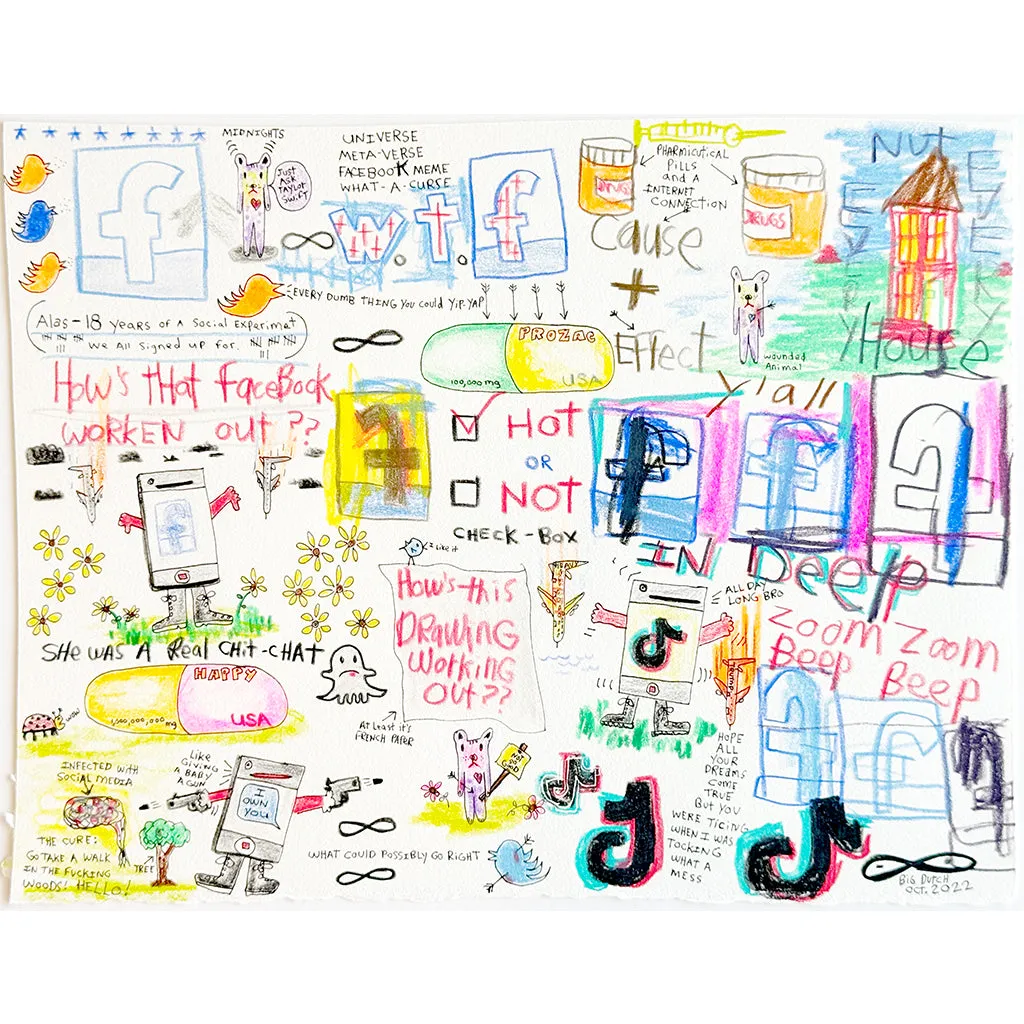 MIDNIGHTS
JUST
ASK
TAYLOR
SWIFT
UNIVERSE
META-VERSE
FACEBOOK MEME
WHAT-A-CURSE
W.T.F
f
EVERY DUMB THING YOU COULD YIP-YAP
Alas-18 years of a Social Experimet
We All signed up for.
PHARMICUTICAL
PILLS
and A
INTERNET
CONNECTION
DRUGS
DRUGS
Cause
+
Effect
wounded
Animal
NUT
House
PROZAC
100,000mg
USA
How's tHat FaceBook
WORKEN OUT ??
HOT
OR
NOT
CHECK-BOX
y'all
IN Deep
I like it
How's-this
Drawing
Working
Out??
At least it's
FRENCH PAPER
ALL DAY
LONG BRO
ZOOM ZOOM
Beep Beep
SHe WAS A Real CHit-CHAT
HAPPY
USA
wow
INFECTED WITH
SOCIAL MEDIA
THE CURE:
GO TAKE A WALK
IN THE FUCKING
WOODS! HELLO!
TREE
Like
GIVING
A BABY
A GUN
I
OWN
YOU
WHAT COULD POSSIBLY GO RIGHT
HOPE
ALL
YOUR
DREAMS
COME
TRUE
BUT YOU
WERE TICING
WHEN I WAS
TOCKING
WHAT A
MESS
BIG DUTCH
OCT. 2022